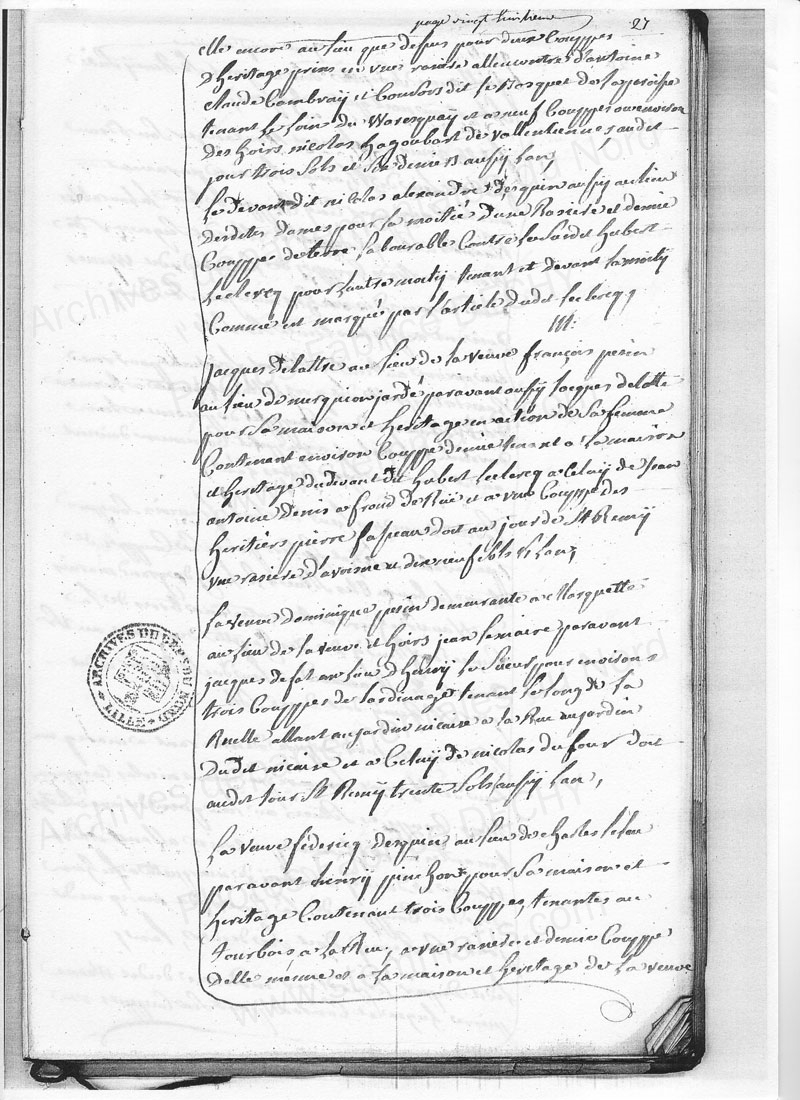 page vingt huitieme 27
elle encore au lieu que dessus pour deux Couppes
d'heritage prins en une rasiere allencontre d'antoine
Claude Cambraÿ et Consors dit le Bosquet de la paroisse
tenant le loin du Waresquaÿ et a neuf Couppes ou environ
des hoirs nicolas hagoubart de vallentiennes audit
pour trois sols et six deniers aussÿ lan,
Le devant dit nicolas alexandre desquin aussy au lieu
desdites dames pour la moitiée d'une Rasiere et demie
Couppe de terre labourable Contre le susdit hubert
Leclercq pour l'autre moitÿ tenant et devant la moitÿ
Comme est marqué par l'article dudit leclercq
Jacques delattre au lieu de la veuve françois pesin
au lieu de paravant aussÿ Jacques delatte
pour sa maison et heritage en action de sa femme
Contenant environ Couppe demie tenant a la maison
et heritage dudevant dit hubert leclercq a Celuÿ de Jean
antoine denis a froud de Rüe et a une Couppe des
heritiers pierre lapeau doit au jour de St Remÿ
une rasiere d'avoisne et dix neuf sols lan,
la veuve dominique pesin demeurante a Marquette
au lieu de la veuve et hoirs jean lemaire paravant
jacques au lieu d'henrÿ le sueur pour environ
trois Couppes de Jardinage tenant le long de la
Ruelle allant au jardin nicaise a la Rue au jardin
dudit nicaise et a Celuÿ de nicolas du four doit
audit jour St Remÿ trente sols aussÿ lan,
La veuve fédericq desquin au lieu de charles
paravant henrÿ pinchon pour sa maison et
heritage Contenant trois Couppes, tenantes au
tourbois, a la Rue, a une rasiere et demie Couppe
delle mesme et a la maison et heritage de la veuve
ARCHIVES DU DEP. DU NORD
LILLE